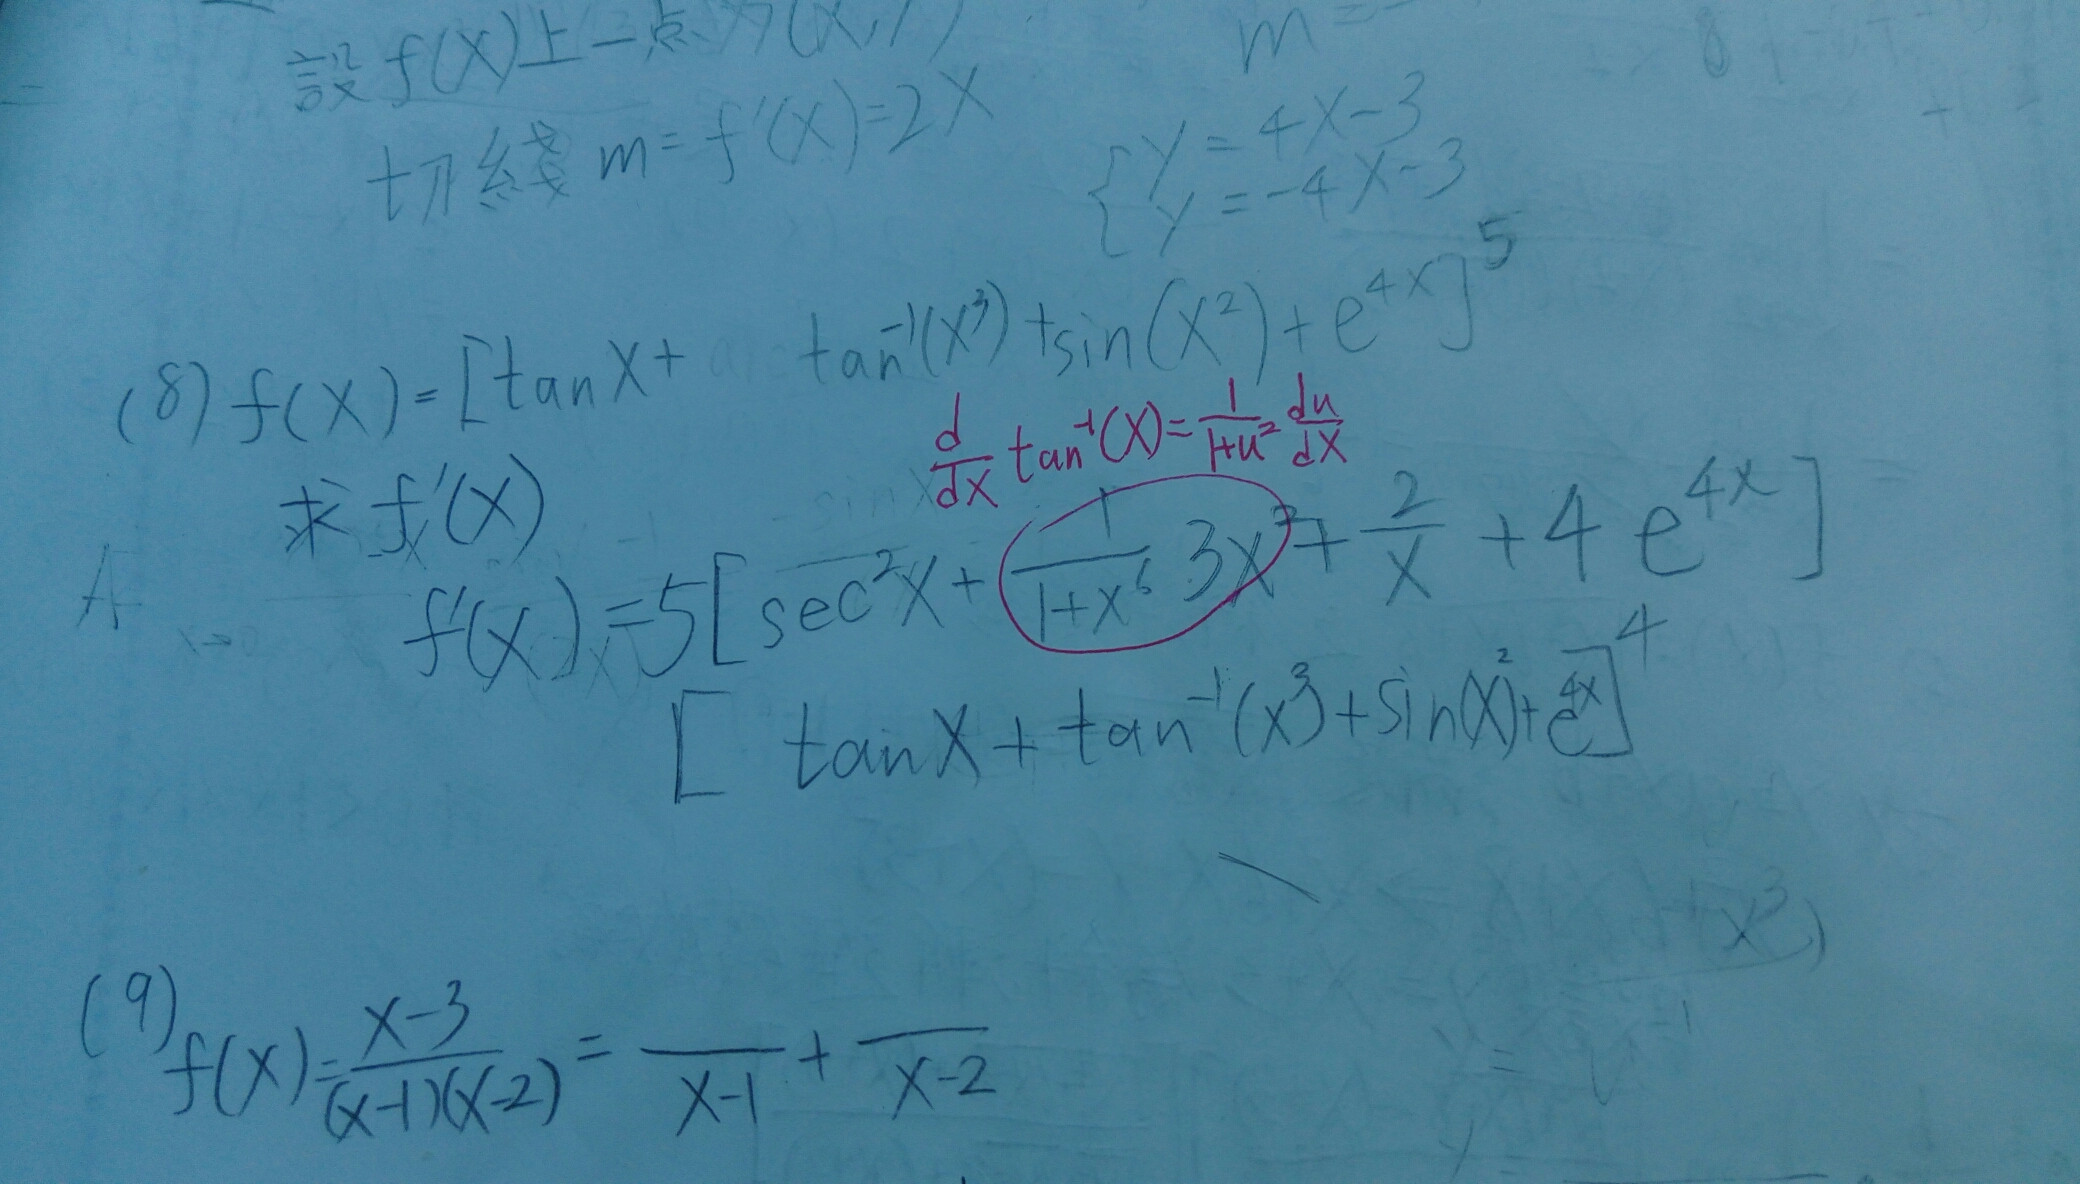 設 f(x)上一点 為(x,y)
m=
切綫 m=f'(x)=2x
{y=4x-3
y=-4x-3
(8) f(x)=[tan x+ tan⁻¹(x³)+sin(x²)+e⁴ˣ]⁵
d/dx tan⁻¹(x)=1/(1+u²) du/dx
求 f'(x)
f'(x)=5[sec²x+ 1/(1+x⁶) 3x²+ 2/x +4 e⁴ˣ]
[tan x+tan⁻¹(x³)+sin(x)²+e⁴ˣ]⁴
(9) f(x)=(x-3)/((x-1)(x-2))= /(x-1) + /(x-2)